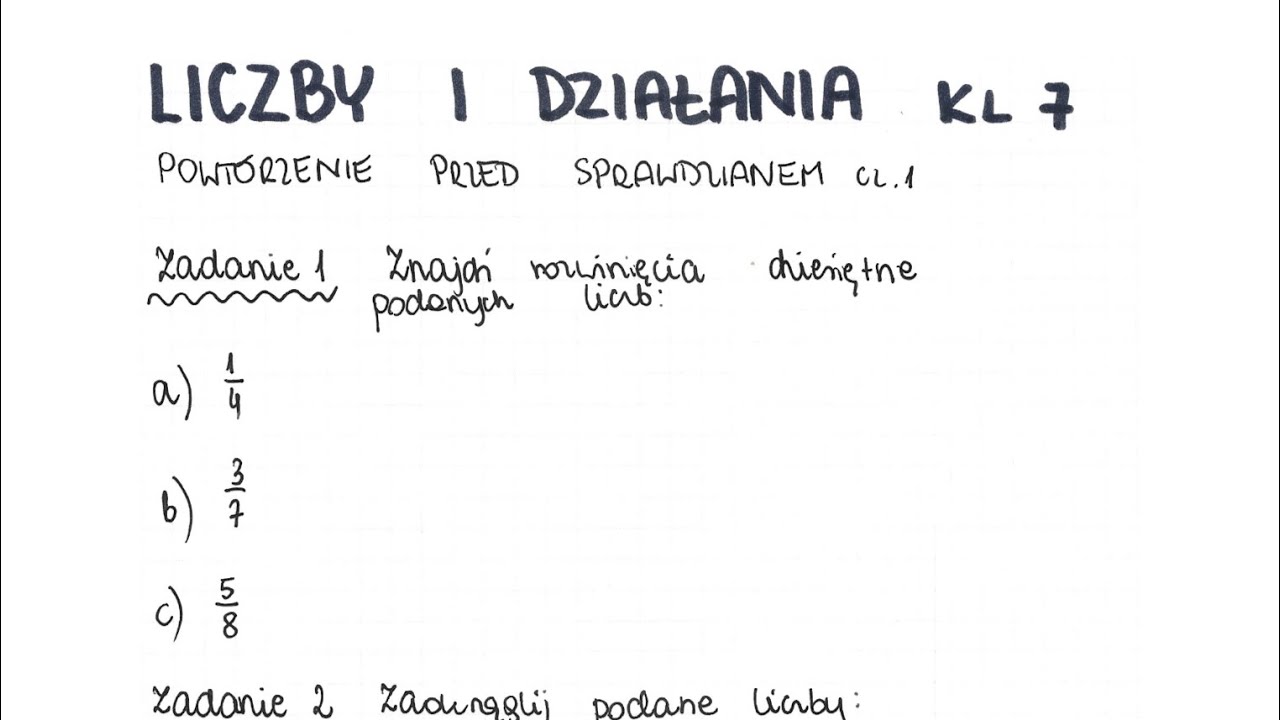 LICZBY I DZIAŁANIA KL 7
POWTÓRZENIE PRZED SPRAWDZIANEM CZ.1
Zadanie 1 Znajdń rozwinięcia dziesiętne
podanych liczb:
a) 1/4
b) 3/7
c) 5/8
Zadanie 2 Zaokrąglij podane liczby: